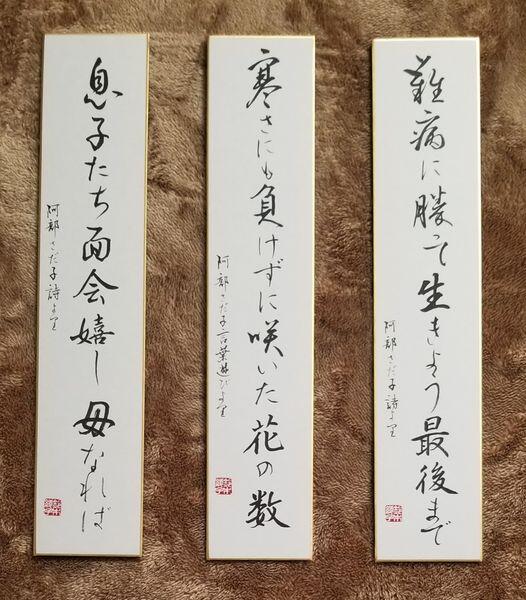 難病に勝って生きよう最後まで
阿部さだ子詩より
寒さにも負けずに咲いた花の数
阿部さだ子言葉遊びより
息子たち面会嬉し母なれば
阿部さだ子詩より